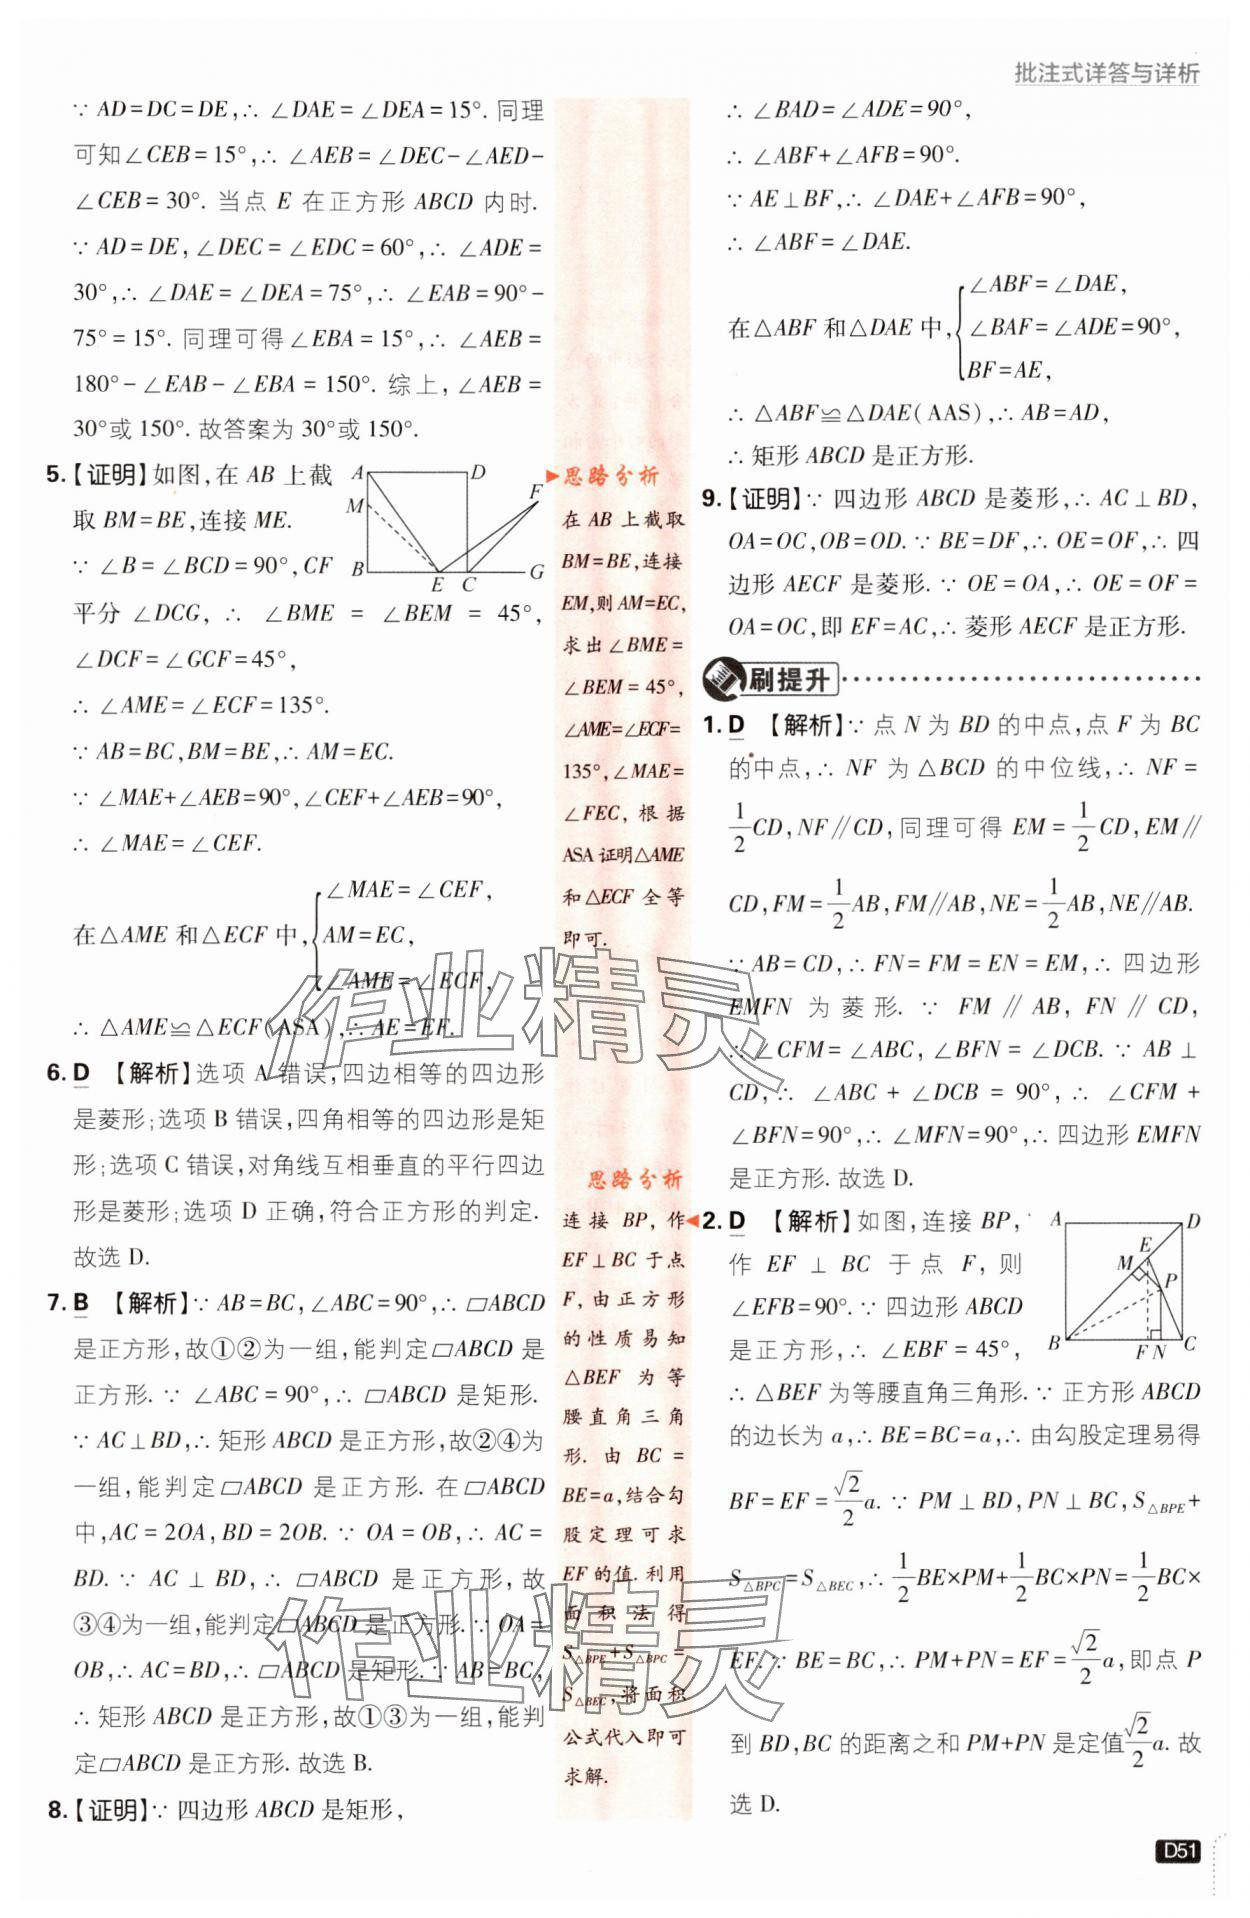 批注式详答与详析
∵ AD=DC=DE,∴ ∠DAE=∠DEA=15°. 同理
可知∠CEB=15°,∴ ∠AEB=∠DEC-∠AED-
∠CEB=30°. 当点 E 在正方形 ABCD 内时.
∵ AD=DE,∠DEC=∠EDC=60°,∴ ∠ADE=
30°,∴ ∠DAE=∠DEA=75°,∴ ∠EAB=90°-
75°=15°. 同理可得∠EBA=15°,∴ ∠AEB=
180°-∠EAB-∠EBA=150°. 综上,∠AEB=
30°或 150°. 故答案为 30°或 150°.
5.【证明】如图,在 AB 上截
取 BM=BE,连接 ME.
∵ ∠B=∠BCD=90°,CF
平分∠DCG,∴ ∠BME=∠BEM=45°,
∠DCF=∠GCF=45°,
∴ ∠AME=∠ECF=135°.
∵ AB=BC,BM=BE,∴ AM=EC.
∵ ∠MAE+∠AEB=90°,∠CEF+∠AEB=90°,
∴ ∠MAE=∠CEF.
在△AME 和△ECF 中,{∠MAE=∠CEF,
AM=EC,
∠AME=∠ECF,
∴ △AME≌△ECF(ASA),∴ AE=EF.
A D F M B E C G
6. D 【解析】选项 A 错误,四边相等的四边形
是菱形;选项 B 错误,四角相等的四边形是矩
形;选项 C 错误,对角线互相垂直的平行四边
形是菱形;选项 D 正确,符合正方形的判定.
故选 D.
7. B 【解析】∵ AB=BC,∠ABC=90°,∴ ▱ABCD
是正方形,故①②为一组,能判定▱ABCD 是
正方形. ∵ ∠ABC=90°,∴ ▱ABCD 是矩形.
∵ AC⊥BD,∴ 矩形 ABCD 是正方形,故②④为
一组,能判定▱ABCD 是正方形. 在▱ABCD
中,AC=2OA,BD=2OB. ∵ OA=OB,∴ AC=
BD. ∵ AC⊥BD,∴ ▱ABCD 是正方形,故
③④为一组,能判定▱ABCD 是正方形. ∵ OA=
OB,∴ AC=BD,∴ ▱ABCD 是矩形. ∵ AB=BC,
∴ 矩形 ABCD 是正方形,故①③为一组,能判
定▱ABCD 是正方形. 故选 B.
8.【证明】∵ 四边形 ABCD 是矩形,
思路分析
在 AB 上截取
BM=BE,连接
EM,则 AM=EC,
求出∠BME=
∠BEM=45°,
∠AME=∠ECF=
135°,∠MAE=
∠FEC,根据
ASA 证明△AME
和△ECF 全等
即可.
思路分析
连接 BP,作
EF⊥BC 于点
F,由正方形
的性质易知
△BEF 为等
腰直角三角
形. 由 BC=
BE=a,结合勾
股定理可求
EF 的值. 利用
面积法得
S△BPE+S△BPC=
S△BEC,将面积
公式代入即可
求解.
∴ ∠BAD=∠ADE=90°,
∴ ∠ABF+∠AFB=90°.
∵ AE⊥BF,∴ ∠DAE+∠AFB=90°,
∴ ∠ABF=∠DAE.
在△ABF 和△DAE 中,{∠ABF=∠DAE,
∠BAF=∠ADE=90°,
BF=AE,
∴ △ABF≌△DAE(AAS),∴ AB=AD,
∴ 矩形 ABCD 是正方形.
9.【证明】∵ 四边形 ABCD 是菱形,∴ AC⊥BD,
OA=OC,OB=OD. ∵ BE=DF,∴ OE=OF,∴ 四
边形 AECF 是菱形. ∵ OE=OA,∴ OE=OF=
OA=OC,即 EF=AC,∴ 菱形 AECF 是正方形.
刷提升
1. D 【解析】∵ 点 N 为 BD 的中点,点 F 为 BC
的中点,∴ NF 为△BCD 的中位线,∴ NF=
1/2 CD,NF∥CD,同理可得 EM=1/2 CD,EM∥
CD,FM=1/2 AB,FM∥AB,NE=1/2 AB,NE∥AB.
∵ AB=CD,∴ FN=FM=EN=EM,∴ 四边形
EMFN 为菱形. ∵ FM∥AB,FN∥CD,
∴ ∠CFM=∠ABC,∠BFN=∠DCB. ∵ AB⊥
CD,∴ ∠ABC+∠DCB=90°,∴ ∠CFM+
∠BFN=90°,∴ ∠MFN=90°,∴ 四边形 EMFN
是正方形. 故选 D.
2. D 【解析】如图,连接 BP,
作 EF⊥BC 于点 F,则
∠EFB=90°. ∵ 四边形 ABCD
是正方形,∴ ∠EBF=45°,
∴ △BEF 为等腰直角三角形. ∵ 正方形 ABCD
的边长为 a,∴ BE=BC=a,∴ 由勾股定理易得
BF=EF=√2/2 a. ∵ PM⊥BD,PN⊥BC,S△BPE+
S△BPC=S△BEC,∴ 1/2 BE×PM+1/2 BC×PN=1/2 BC×
EF. ∵ BE=BC,∴ PM+PN=EF=√2/2 a,即点 P
到 BD,BC 的距离之和 PM+PN 是定值√2/2 a. 故
选 D.
A D E M P B F N C
D51
作业精灵
作业精灵